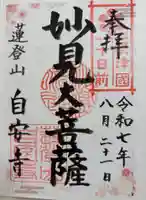 奉拝
令和七年
八月二十一日
妙見大菩薩
蓮登山
自安寺